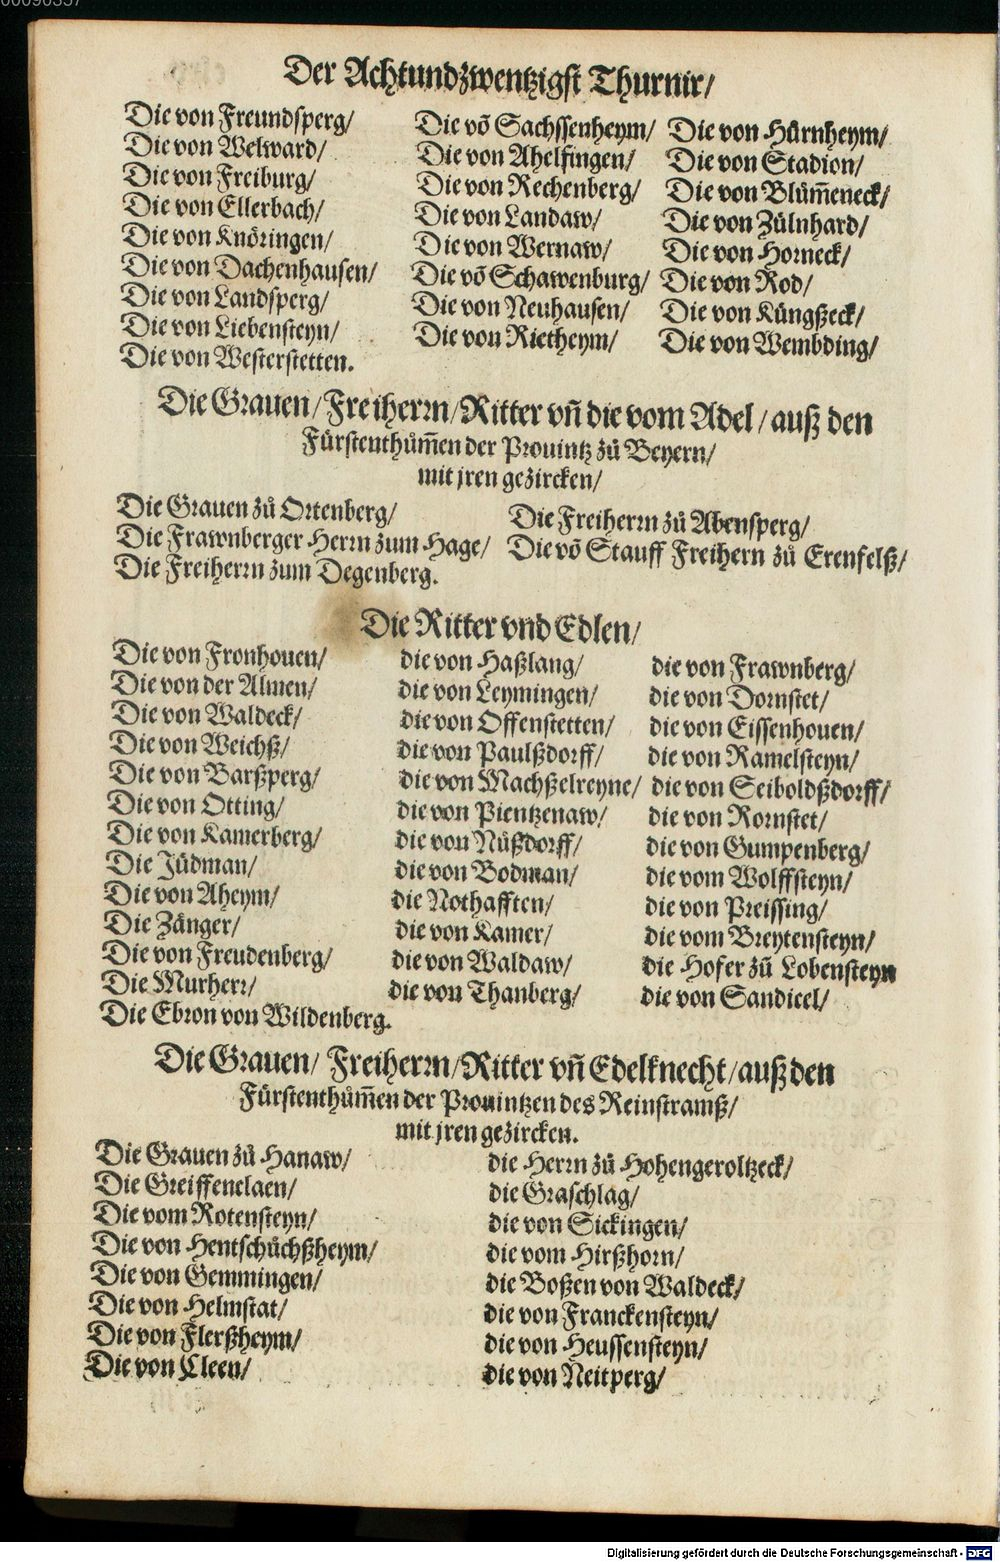 Der Achtundzwentzigst Thurnir/
Die von Freundsperg/
Die von Welward/
Die von Freiburg/
Die von Ellerbach/
Die von Knöringen/
Die von Dachenhausen/
Die von Landsperg/
Die von Liebensteyn/
Die von Westerstetten.
Die võ Sachssenheym/
Die von Ahelfingen/
Die von Rechenberg/
Die von Landaw/
Die von Wernaw/
Die võ Schawenburg/
Die von Neuhausen/
Die von Rietheym/
Die von Hürnheym/
Die von Stadion/
Die von Blům̃eneck/
Die von Zülnhard/
Die von Horneck/
Die von Rod/
Die von Küngßeck/
Die von Wembding/
Die Grauen/Freiherrn/Ritter vñ die vom Adel/auß den
Fürstenthům̃en der Prouintz zů Beyern/
mit jren gezircken/
Die Grauen zů Ortenberg/
Die Frawnberger Herrn zum Hage/
Die Freiherrn zum Degenberg.
Die Freiherrn zů Abensperg/
Die võ Stauff Freihern zů Erenfelß/
Die Ritter vnd Edlen/
Die von Fronhouen/
Die von der Almen/
Die von Waldeck/
Die von Weichß/
Die von Barßperg/
Die von Otting/
Die von Kamerberg/
Die Jüdman/
Die von Aheym/
Die Zänger/
Die von Freudenberg/
Die Murherr/
Die Ebron von Wildenberg.
die von Haßlang/
die von Leymingen/
die von Offenstetten/
die von Paulßdorff/
die von Machßelreyne/
die von Pientzenaw/
die von Nüßdorff/
die von Bodman/
die Nothafften/
die von Kamer/
die von Waldaw/
die von Thanberg/
die von Frawnberg/
die von Dornstet/
die von Eissenhouen/
die von Ramelsteyn/
die von Seiboldßdorff/
die von Rornstet/
die von Gumpenberg/
die vom Wolffsteyn/
die von Preissing/
die vom Breytensteyn/
die Hofer zů Lobensteyn
die von Sandicel/
Die Grauen/ Freiherrn/Ritter vñ Edelknecht/auß den
Fürstenthům̃en der Prouintzen des Reinstramß/
mit jren gezircken.
Die Grauen zů Hanaw/
Die Greiffenclaen/
Die vom Rotensteyn/
Die von Hentschůchßheym/
Die von Gemmingen/
Die von Helmstat/
Die von Flerßheym/
Die von Cleen/
die Herrn zů Hohengeroltzeck/
die Graschlag/
die von Sickingen/
die vom Hirßhorn/
die Boßen von Waldeck/
die von Franckensteyn/
die von Heussensteyn/
die von Neitperg/
Digitalisierung gefördert durch die Deutsche Forschungsgemeinschaft - DFG